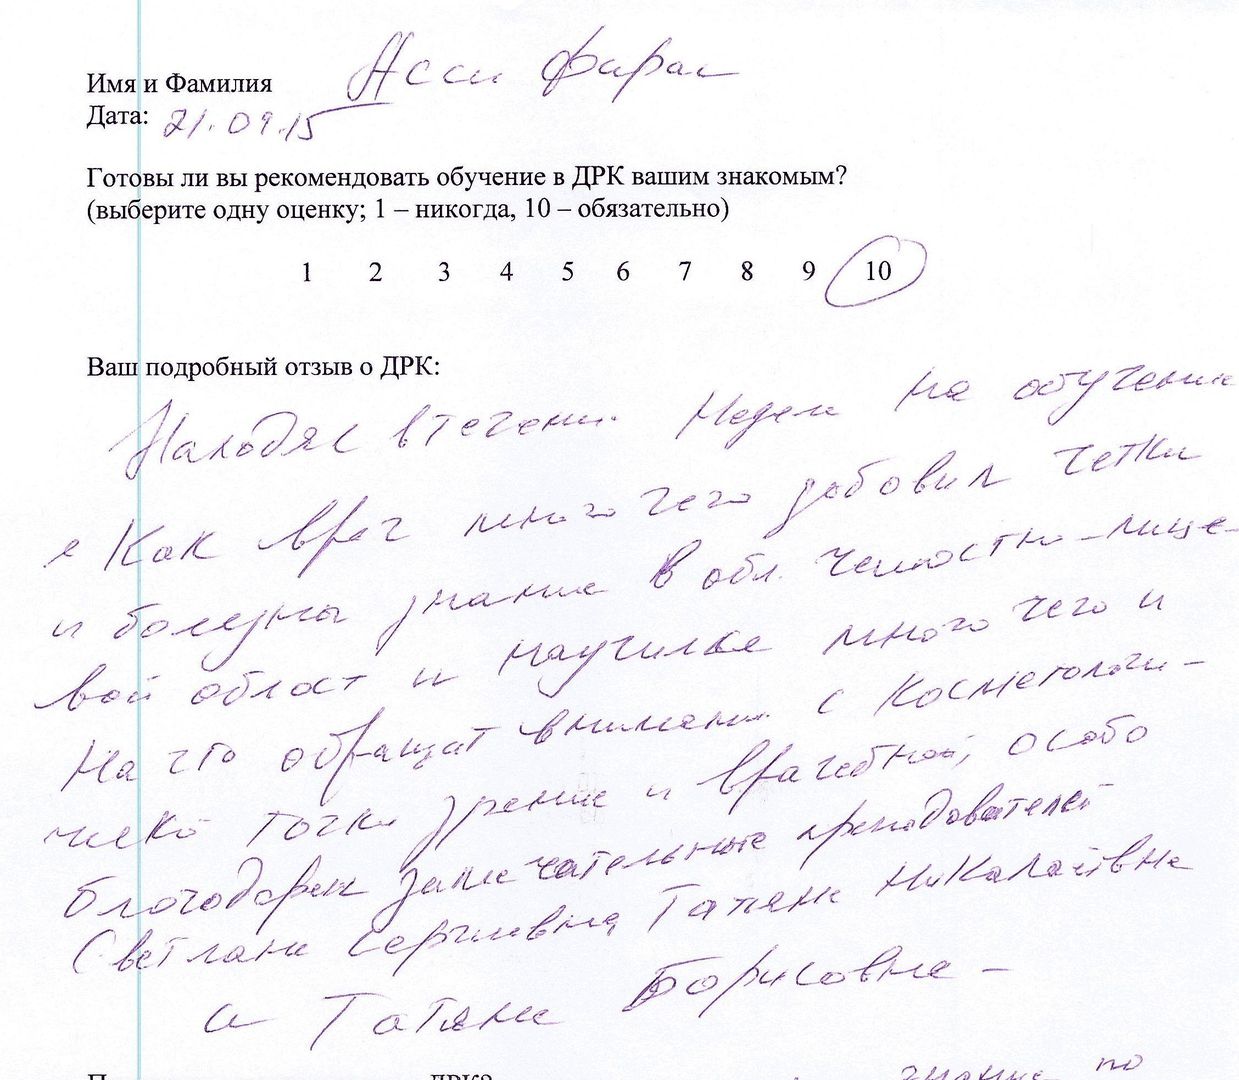 Имя и Фамилия Асси Фирас
Дата: 21.09.15
Готовы ли вы рекомендовать обучение в ДРК вашим знакомым?
(выберите одну оценку; 1 – никогда, 10 – обязательно)
1 2 3 4 5 6 7 8 9 10
Ваш подробный отзыв о ДРК:
Находяс втечении недели на обучение
я как врач много чего добовил четки
и болезны знание в обл. челюстно-лице-
вой област и научился много чего и
на что обращат внимание с косметологи-
ческо точки зрение и врачебной, особо
благодарен замечательные преподователей
Светлане Сергиевна, Татяне Николаевне
и Татяне Борисовне –
ДРК? знание по